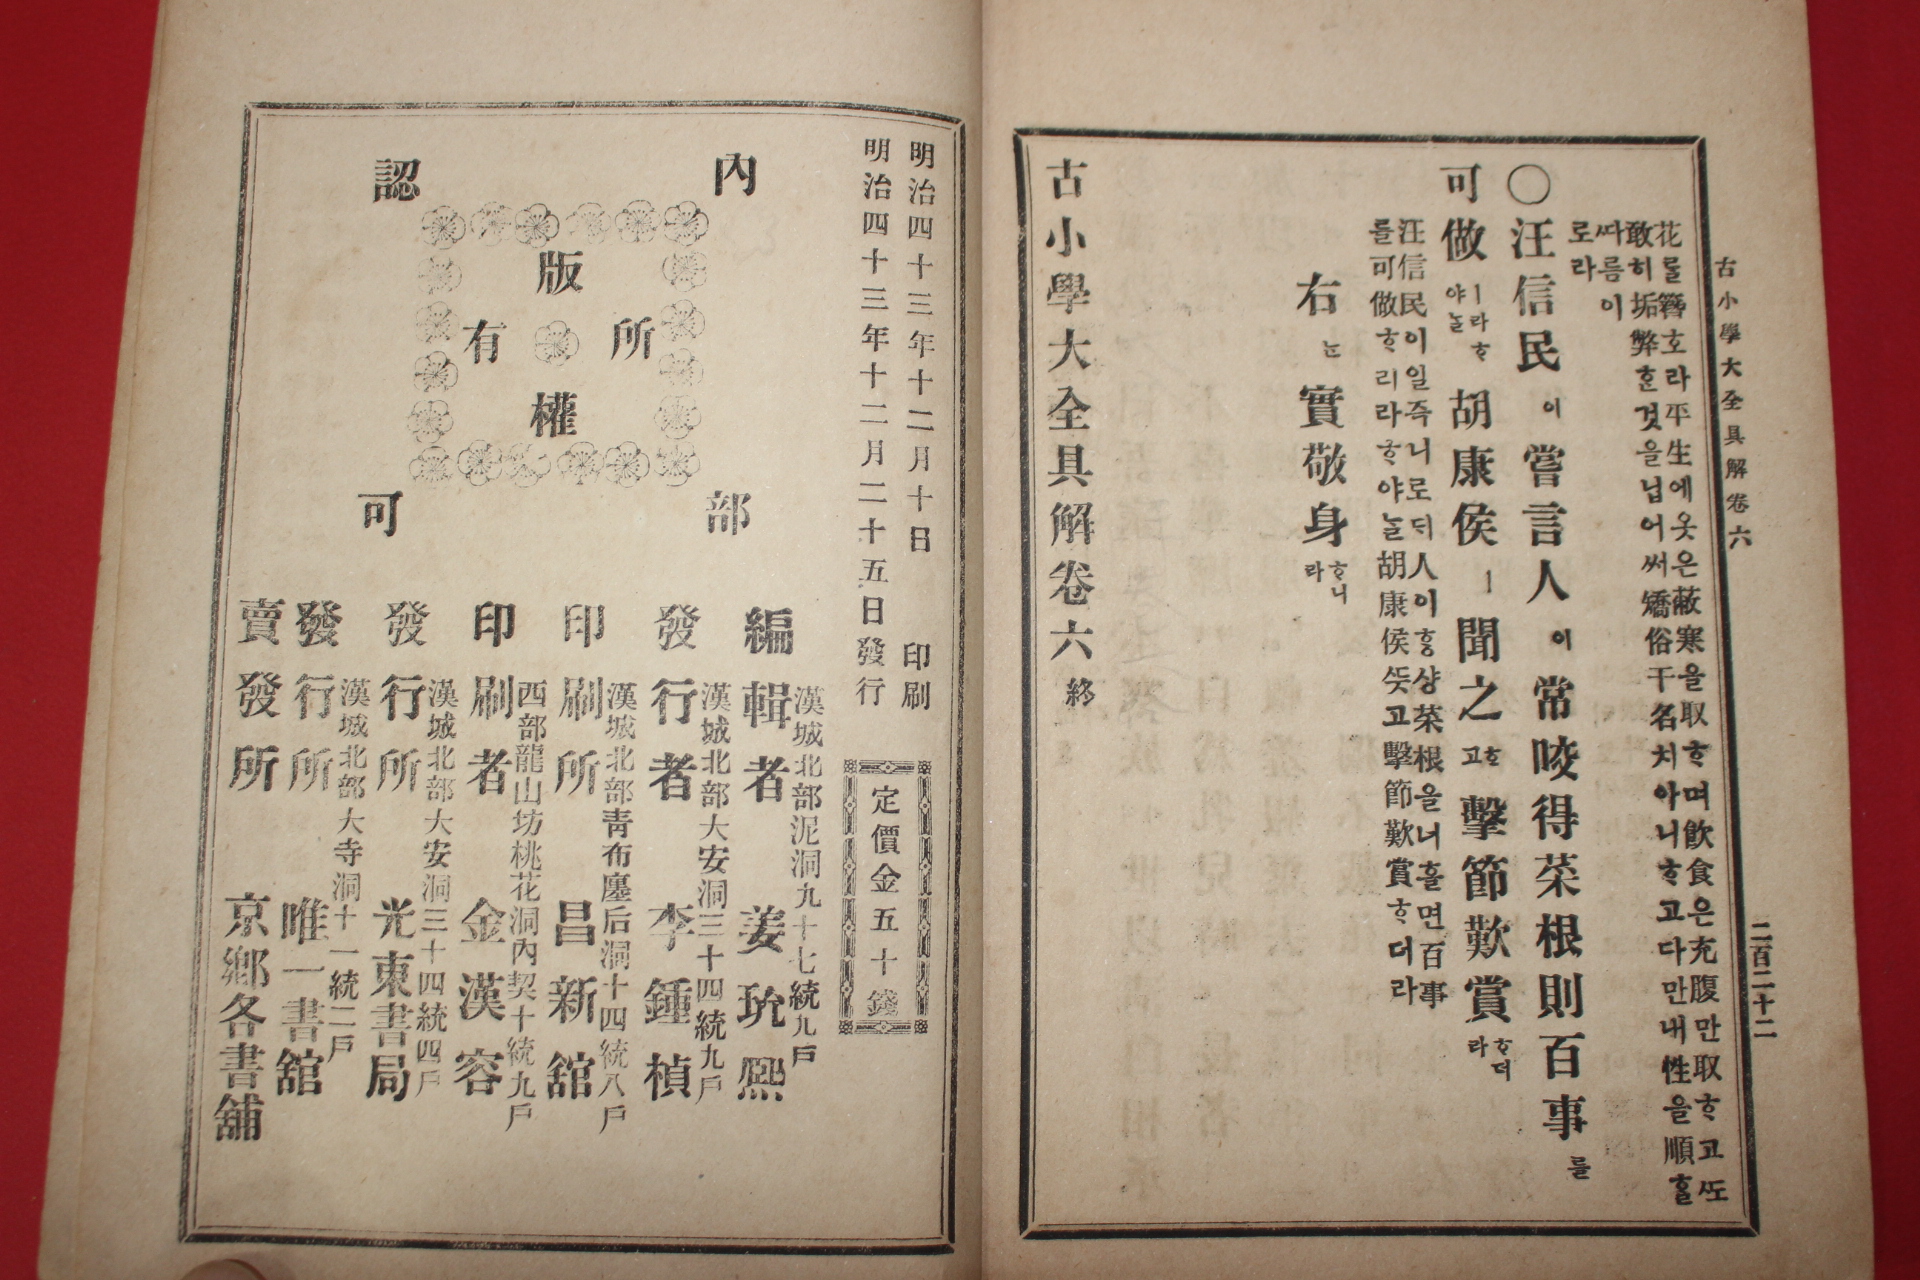 古小學大全具解卷六
二百二十二
花를簪호라平生에옷은蔽寒을取ᄒᆞ며飮食은充腹만取ᄒᆞ고ᄯᅩ
敢히垢弊ᄒᆞᆫ것을닙어써矯俗干名치아니ᄒᆞ고다만내性을順ᄒᆞᆯ
ᄯᅡ름이
로라
○汪信民이嘗言人이常咬得菜根則百事를
可做ㅣ라ᄒᆞ야ᄂᆞᆯ胡康侯ㅣ聞之ᄒᆞ고擊節歎賞ᄒᆞ더라
汪信民이일즉니로ᄃᆡ人이ᄒᆞᆼ샹菜根을너흘면百事
를可做ᄒᆞ리라ᄒᆞ야ᄂᆞᆯ胡康侯ㅣ듯고擊節歎賞ᄒᆞ더라
右ᄂᆞᆫ實敬身ᄒᆞ니라
古小學大全具解卷六終
明治四十三年十二月十日 印刷
明治四十三年十二月二十五日發行
定價金五十錢
內部
認可
版權
所有
漢城北部泥洞九十七統九戶
編輯者 姜玧熙
漢城北部大安洞三十四統九戶
發行者 李鍾楨
漢城北部靑布廛后洞十四統八戶
印刷所 昌新舘
西部龍山坊桃花洞內契十統九戶
印刷者 金漢容
漢城北部大安洞三十四統四戶
發行所 光東書局
漢城北部大寺洞十一統二戶
發行所 唯一書舘
賣發所 京鄕各書舖